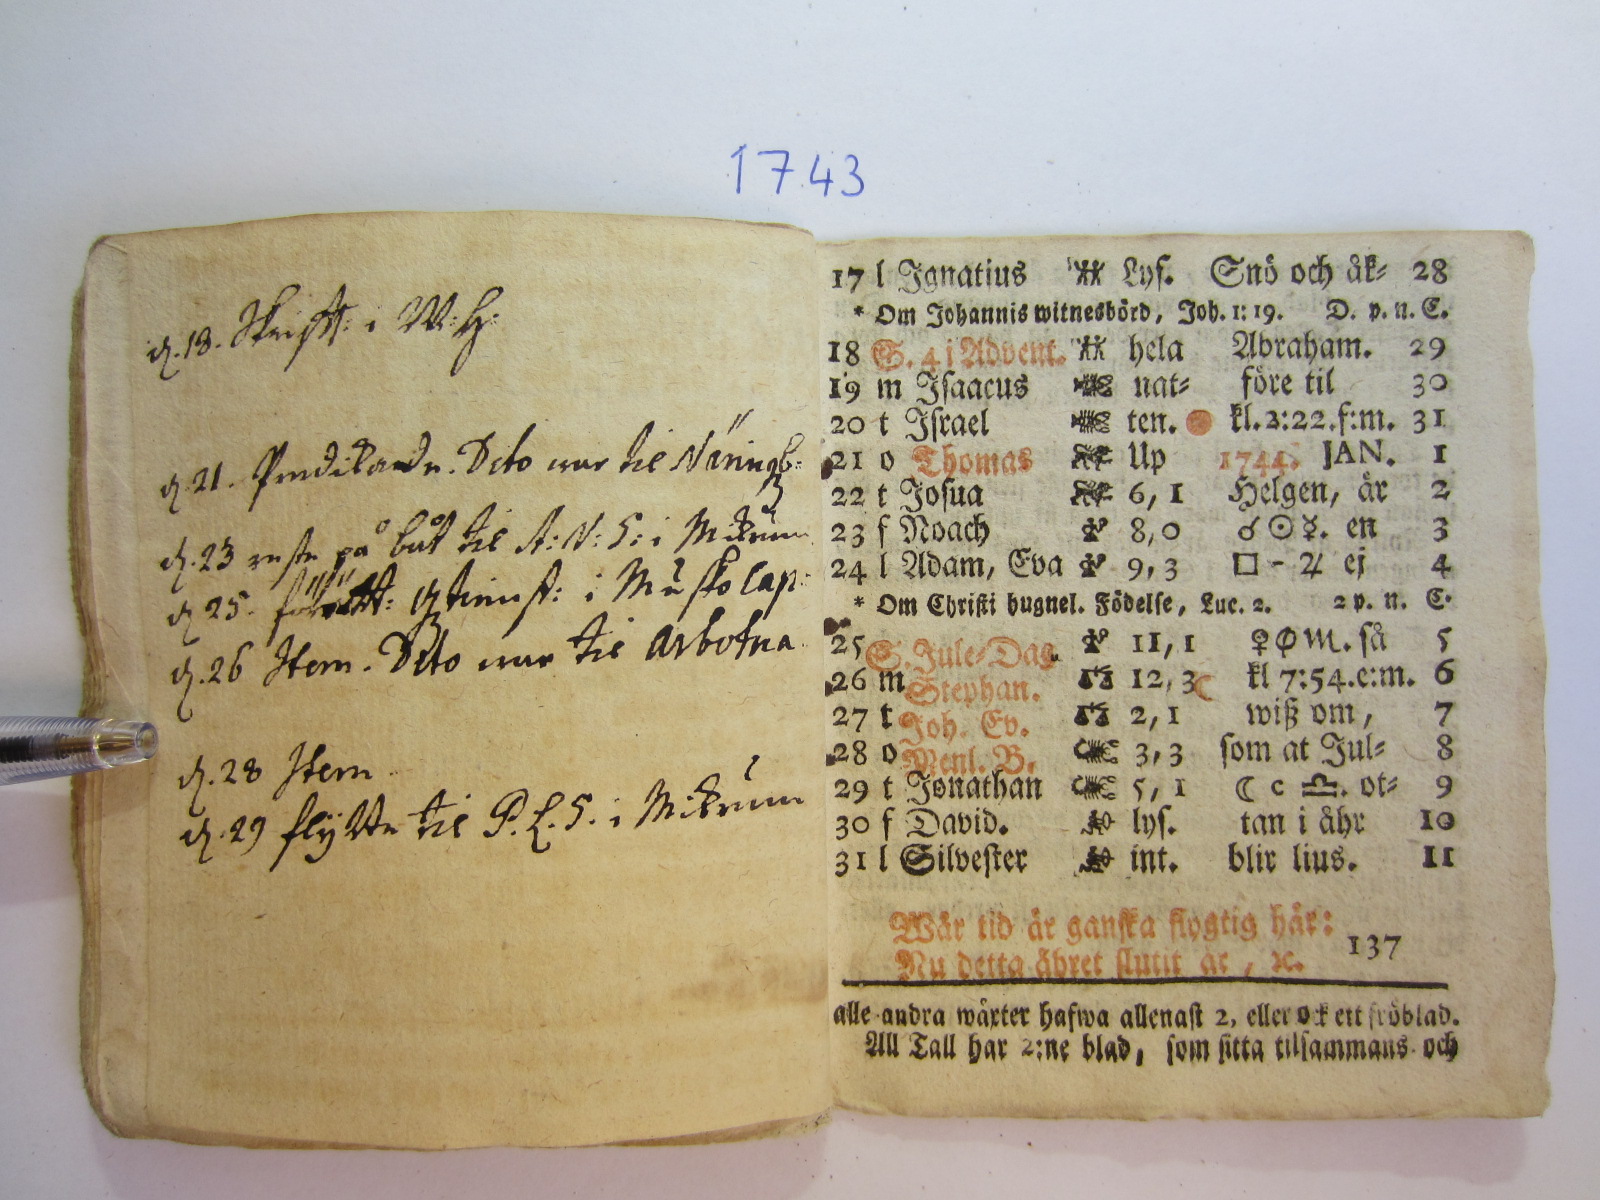 1743
d. 18. Skrift: i W: H:
d. 21. Predikade. Dito war til Näringb:
d. 23 reste på båt til A: N: S: i Mikrum
d. 25. i Muskolap:
d. 26 Item. Dito war til Arbotna
d. 28 Item
d. 29 flytte til P. L. S. i Mikrum
17 l Ignatius Lys. Snö och åk⸗ 28
* Om Johannis witnesbörd, Joh. 1: 19. D. p. n. C.
18 S. 4 i Advent. hela Abraham. 29
19 m Isaacus nat⸗ före til 30
20 t Israel ten. kl. 2:22. f:m. 31
21 o Thomas Up 1744. JAN. 1
22 t Josua 6, 1 Helgen, är 2
23 f Noach 8, 0 ☌ ☉ ☿. en 3
24 l Adam, Eva 9, 3 □ - ♃ ej 4
* Om Christi hugnel. Födelse, Luc. 2. 2 p. n. C.
25 S. Jule⸗Dag 11, 1 så 5
26 m Stephan. 12, 3 ☾ kl 7:54. e:m. 6
27 t Joh. Ev. 2, 1 wiß om, 7
28 o Menl. B. 3, 3 som at Jul⸗ 8
29 t Jonathan 5, 1 ☾ c ♎. ot⸗ 9
30 f David. lys. tan i åhr 10
31 l Silvester int. blir lius. 11
Wår tid är ganska flygtig här:
Nu detta åhret slutit är, ꝛc. 137
alle andra wäxter hafwa allenast 2, eller ock ett fröblad.
All Tall har 2:ne blad, som sitta tilsammans och